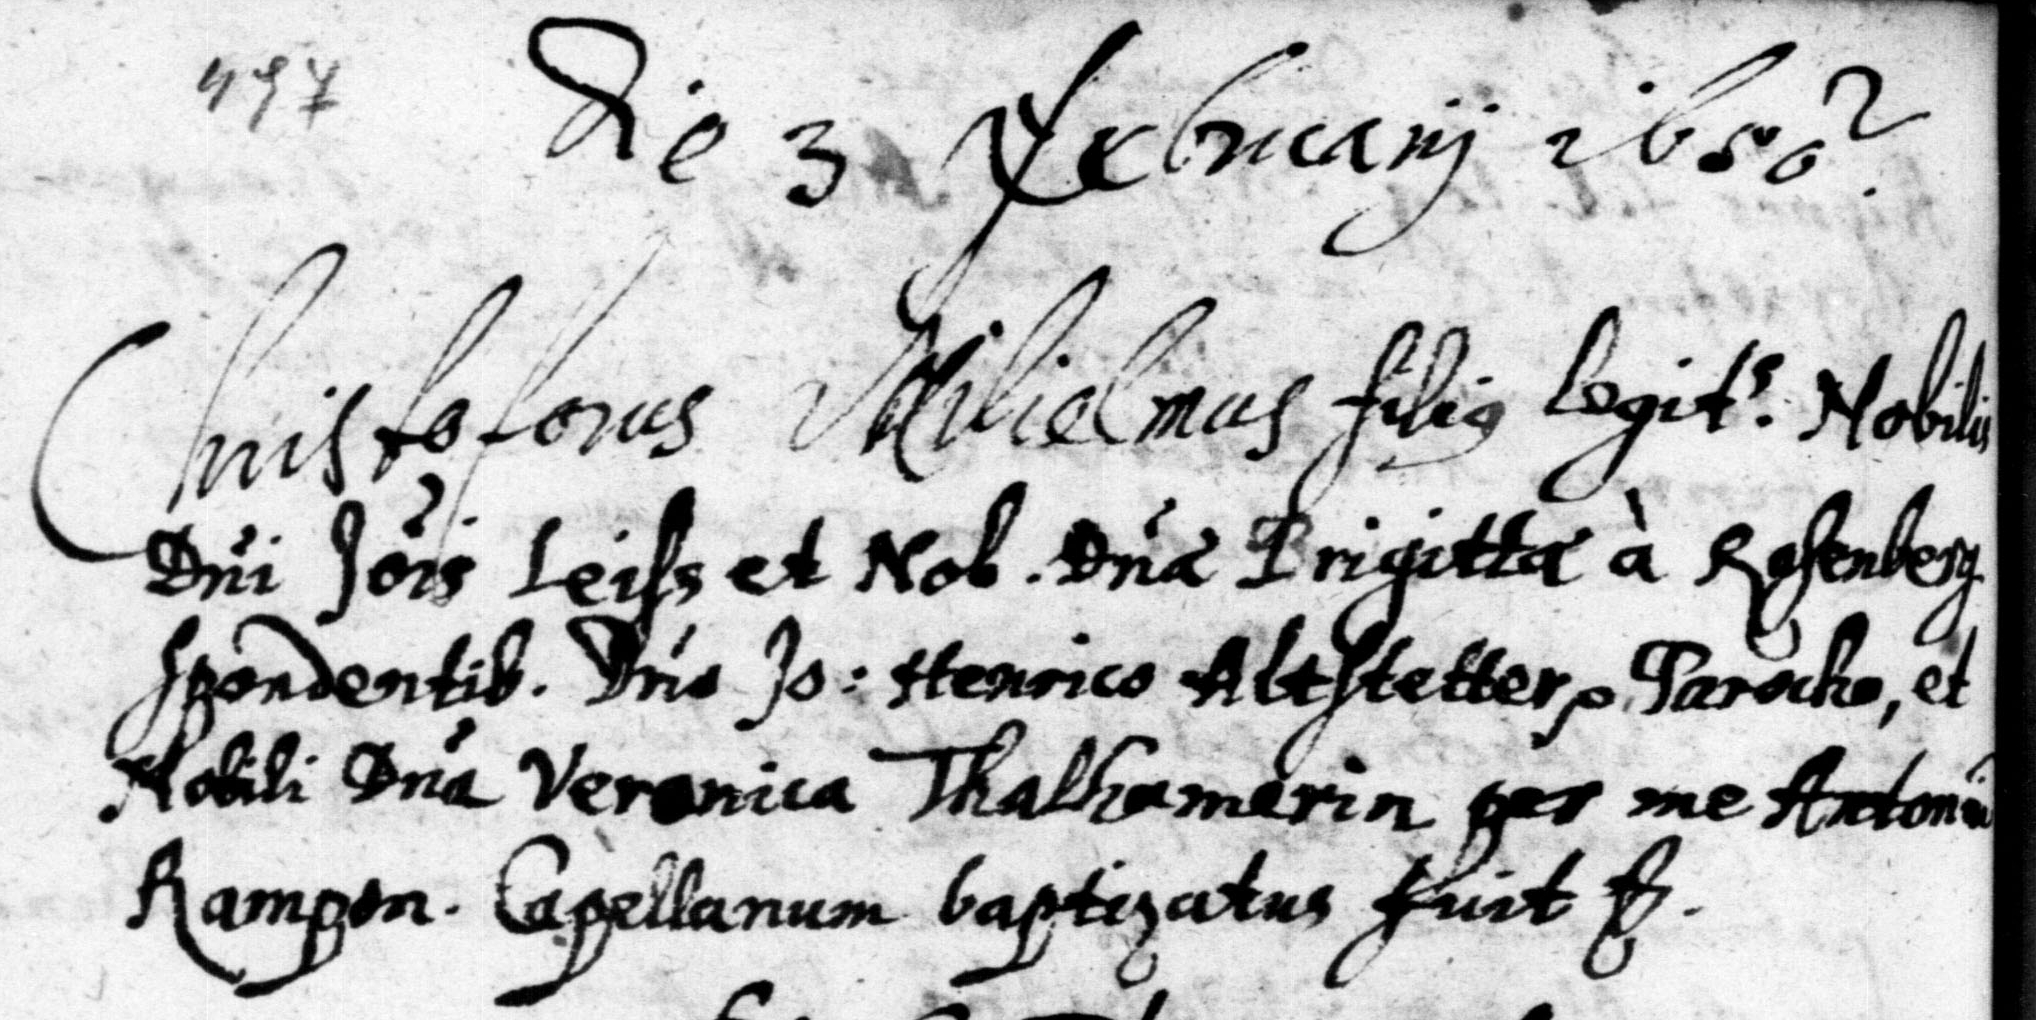 497
Die 3 Februarij 1650.
Christoforus Wilielmus filius legit.s Nobilis
Dñi Joïs Leiss et Nob. Dña Brigitta à Rosenberg
spondentib. Dño Jo: Henrico Altstetter p. Parocho, et
Nobili Dña Veronica Thalhamerin per me Antoniū
Rampon. Capellanum baptizatus fuit